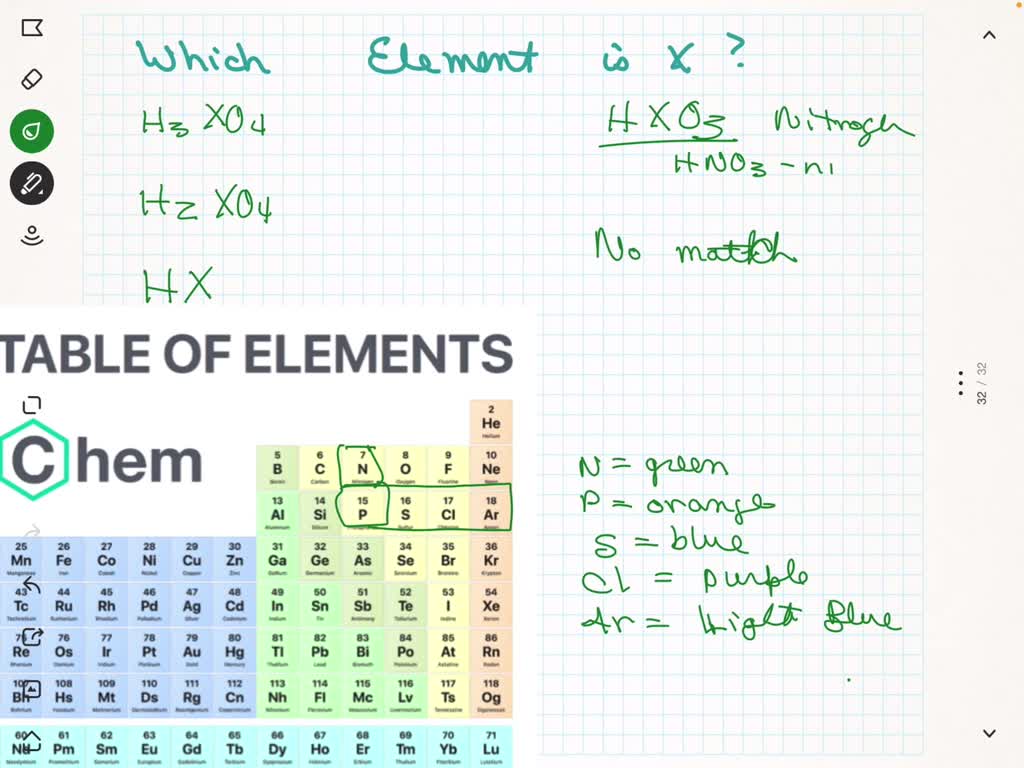 Which Element is X ?
H3 XO4
HXO3 Nitrogen
HNO3 - ni
H2 XO4
No match
HX
TABLE OF ELEMENTS
Chem
2
He
Helium
5 6 7 8 9 10
B C N O F Ne
Carbon Oxygen Fluorine Neon
13 14 15 16 17 18
Al Si P S Cl Ar
Aluminum Silicon
25 26 27 28 29 30 31 32 33 34 35 36
Mn Fe Co Ni Cu Zn Ga Ge As Se Br Kr
43 44 45 46 47 48 49 50 51 52 53 54
Tc Ru Rh Pd Ag Cd In Sn Sb Te I Xe
76 77 78 79 80 81 82 83 84 85 86
Re Os Ir Pt Au Hg Tl Pb Bi Po At Rn
108 109 110 111 112 113 114 115 116 117 118
Bh Hs Mt Ds Rg Cn Nh Fl Mc Lv Ts Og
60 61 62 63 64 65 66 67 68 69 70 71
Pm Sm Eu Gd Tb Dy Ho Er Tm Yb Lu
N = green
P = orange
S = blue
Cl = purple
Ar = Light Blue
32 / 32